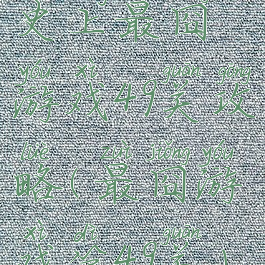 史上最囧
yóu xì guān gōng
游戏49关攻
lüè zuì jiǒng yóu
略(最囧游
xì dì guān
戏第49关